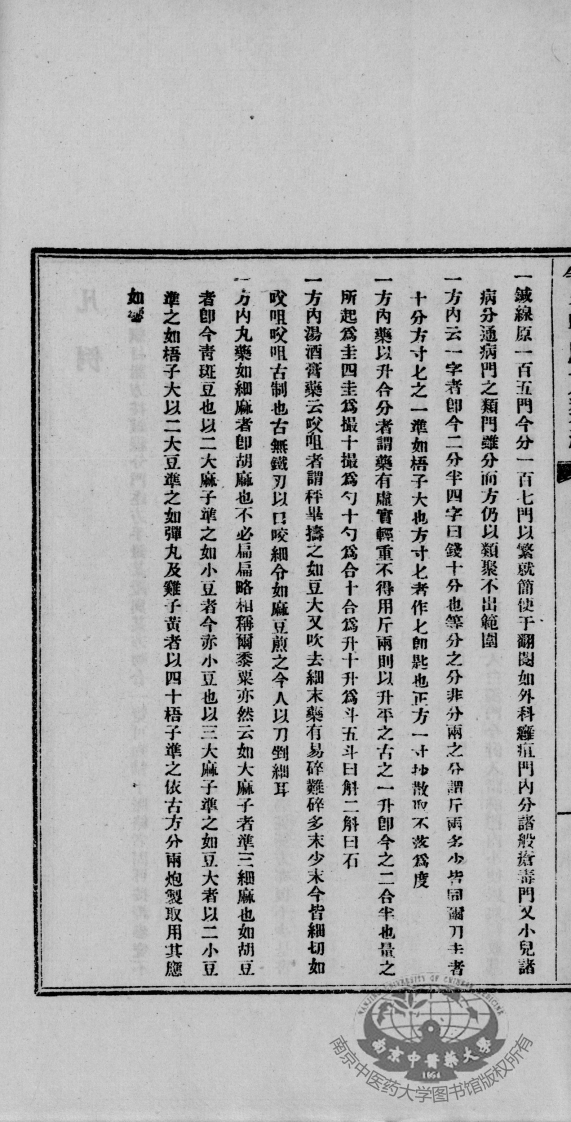 一鍼線原一百五門今分一百七門以繁就簡使于翻閱如外科癰疽門內分諸般瘡毒門又小兒諸
病分通病門之類門雖分而方仍以類聚不出範圍
一方內云一字者卽今二分半四字曰錢十分也等分之分非分兩之分謂斤兩多少皆同爾刀圭者
十分方寸匕之一準如梧子大也方寸匕者作匕卽匙也正方一寸抄散取不落爲度
一方內藥以升合分者謂藥有虛實輕重不得用斤兩則以升平之古之一升卽今之二合半也量之
所起爲圭四圭爲撮十撮爲勺十勺爲合十合爲升十升爲斗五斗曰斛二斛曰石
一方內湯酒膏藥云㕮咀者謂秤畢擣之如豆大又吹去細末藥有易碎難碎多末少末今皆細切如
㕮咀㕮咀古制也古無鐵刃以口咬細令如麻豆煎之今人以刀剉細耳
一方內丸藥如細麻者卽胡麻也不必扁扁略相稱爾黍粟亦然云如大麻子者準三細麻也如胡豆
者卽今靑斑豆也以二大麻子準之如小豆者今赤小豆也以三大麻子準之如豆大者以二小豆
準之如梧子大以二大豆準之如彈丸及雞子黃者以四十梧子準之依古方分兩炮製取用其應
如響
凡例
NANJING UNIVERSITY OF CHINESE MEDICINE
南京中醫藥大學
1954
南京中医药大学图书馆版权所有